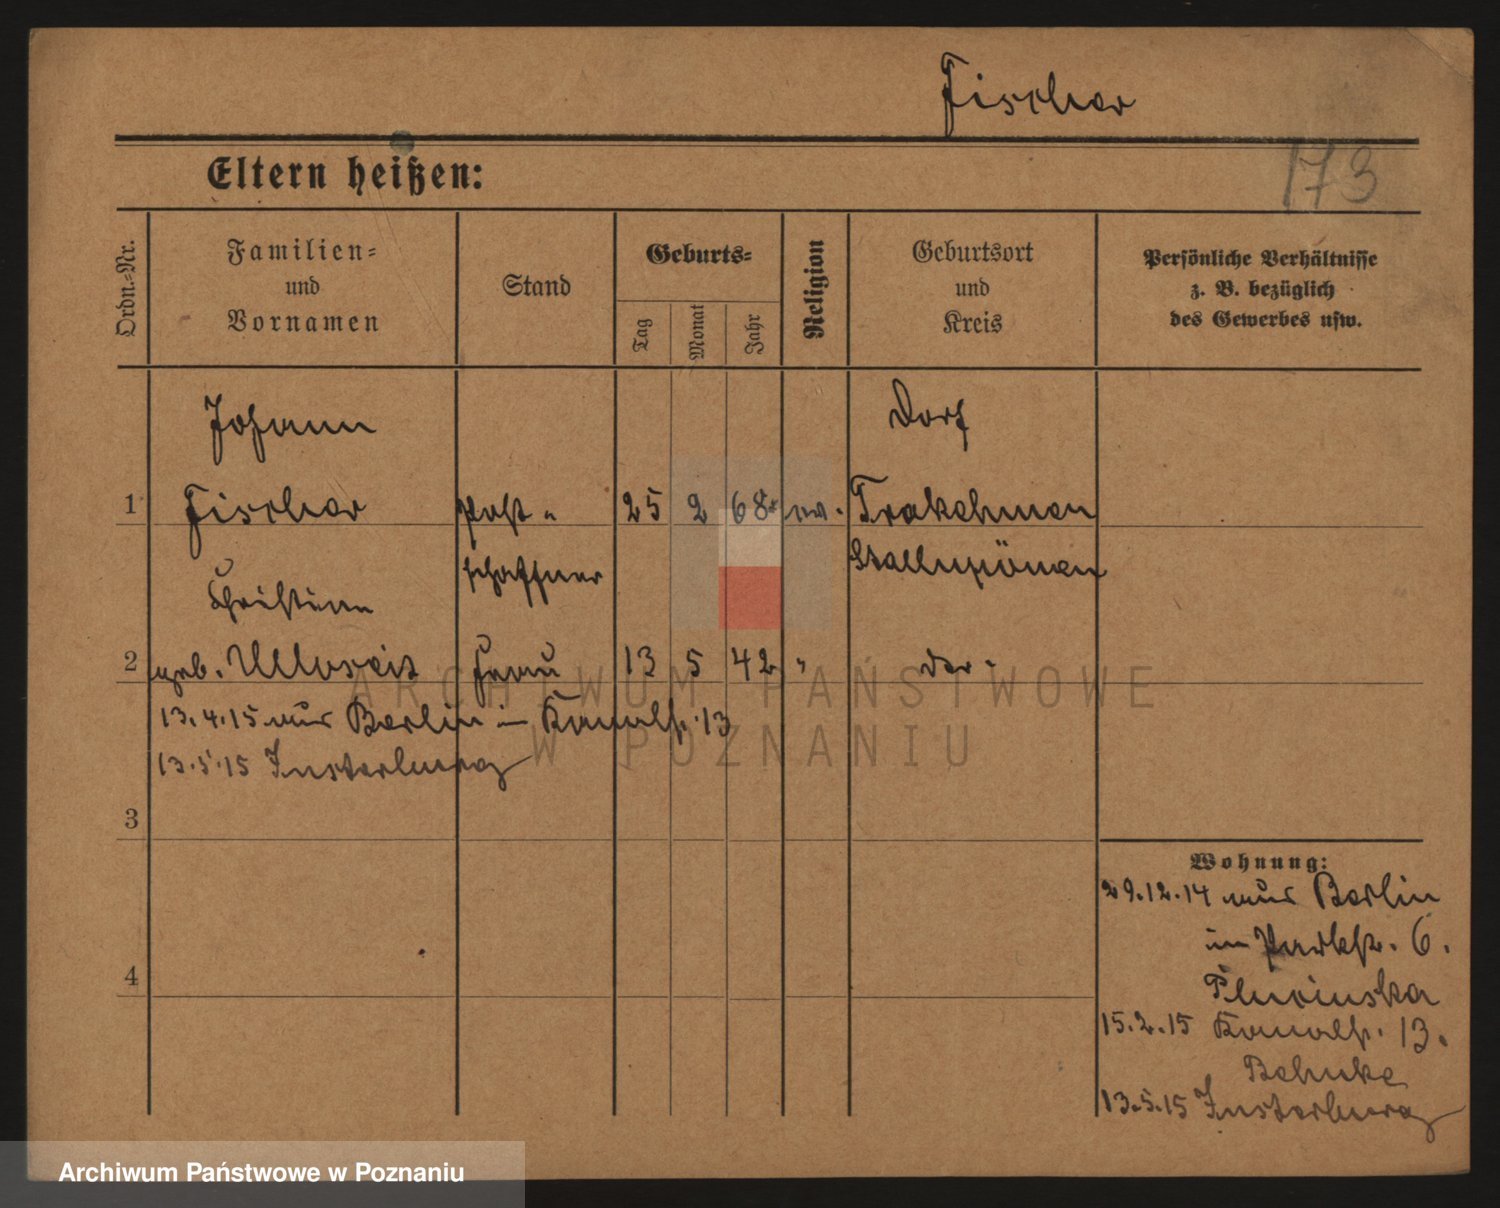 Fischer
173
Eltern heißen:
Ordn.-Nr.
Familien-
und
Vornamen
Stand
Geburts-
Tag
Monat
Jahr
Religion
Geburtsort
und
Kreis
Persönliche Verhältnisse
z. B. bezüglich
des Gewerbes usw.
Johann
Dorf
1 Fischer Post- 25 2 68 ev. Trakehnen
schaffner Stallupönen
Christine
2 geb. Frau 13 5 42 " der-
13.4.15 aus Berlin in Kanalstr. 13
13.5.15 Insterburg
3
4
Wohnung:
29.12.14 aus Berlin
in Parkstr. 6.
15.2.15 Kanalstr. 13.
Behnke
13.5.15 Insterburg
ARCHIWUM PAŃSTWOWE
W POZNANIU
Archiwum Państwowe w Poznaniu